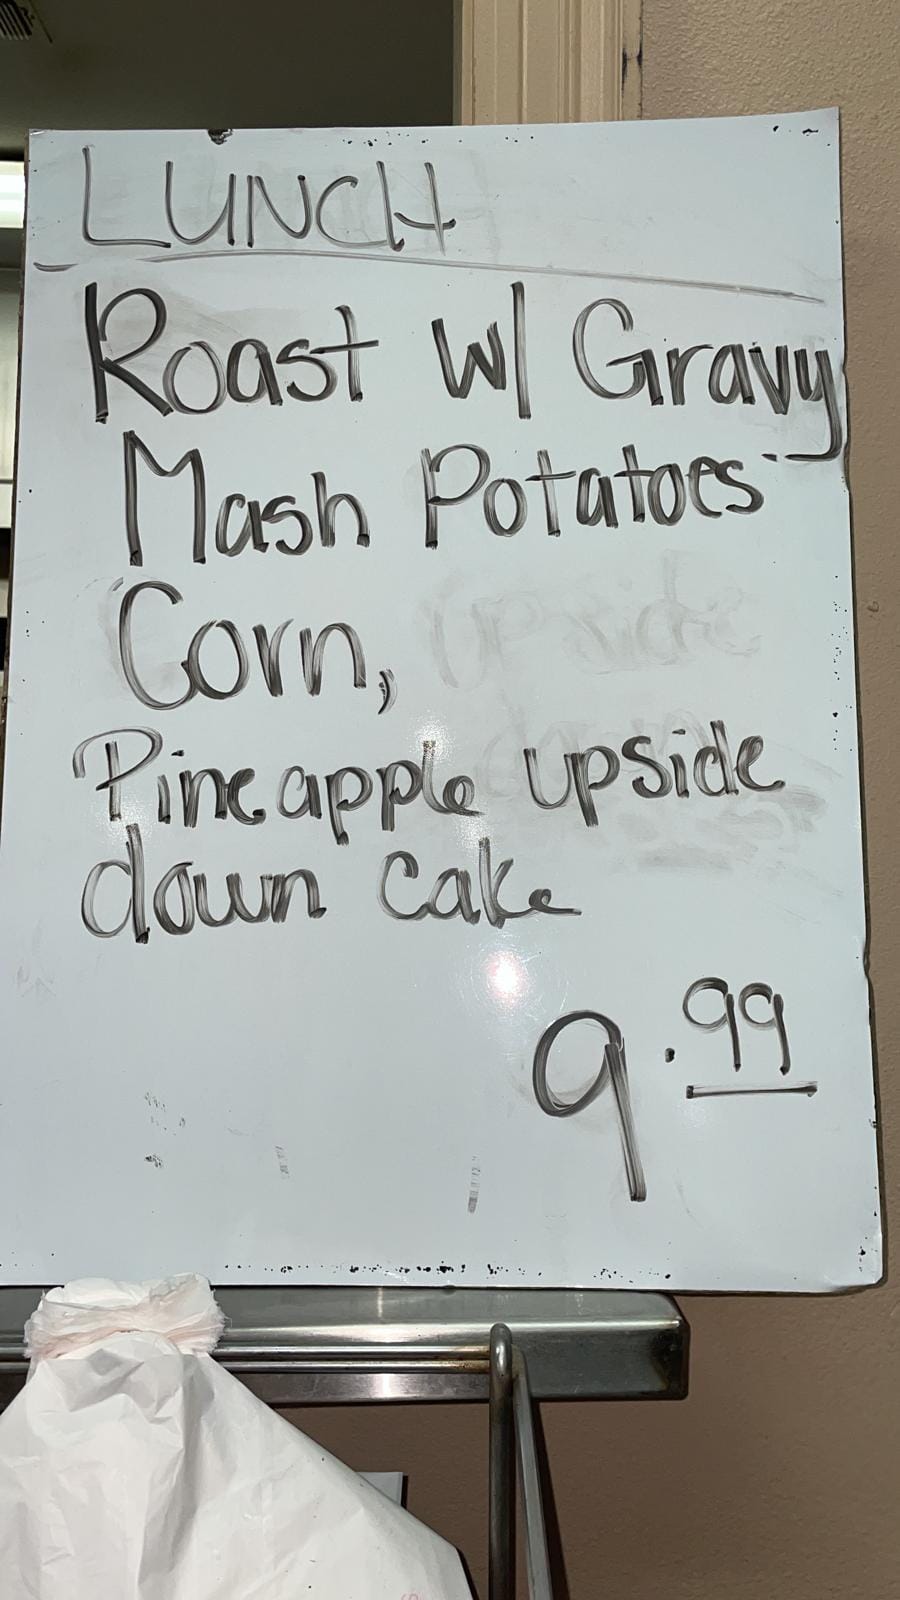 LUNCH
Roast w/ Gravy
Mash Potatoes
Corn, upside
down
Pineapple upside
down cake
9.99